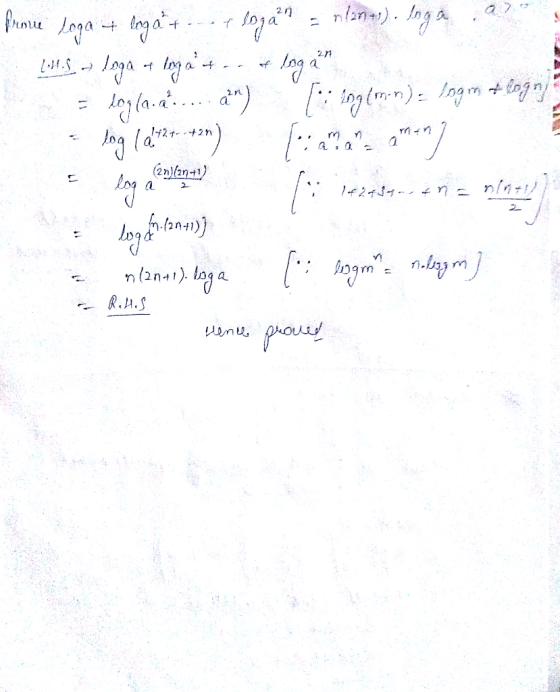 Prove log a + log a² + ---- + log a²ⁿ = n(2n+1). log a . a>
L.H.S → log a + log a² + -- + log a²ⁿ
= log (a.a²..... a²ⁿ) [∵ log(m.n) = log m + log n]
= log (a¹⁺²⁺⁻⁻⁺²ⁿ) [∵ aᵐ.aⁿ = aᵐ⁺ⁿ]
= log a^((2n)(2n+1)/2) [∵ 1+2+3+-- + n = n(n+1)/2]
= log a^{n.(2n+1)}
= n(2n+1). log a [∵ log mⁿ = n.log m]
= R.H.S
Hence proved